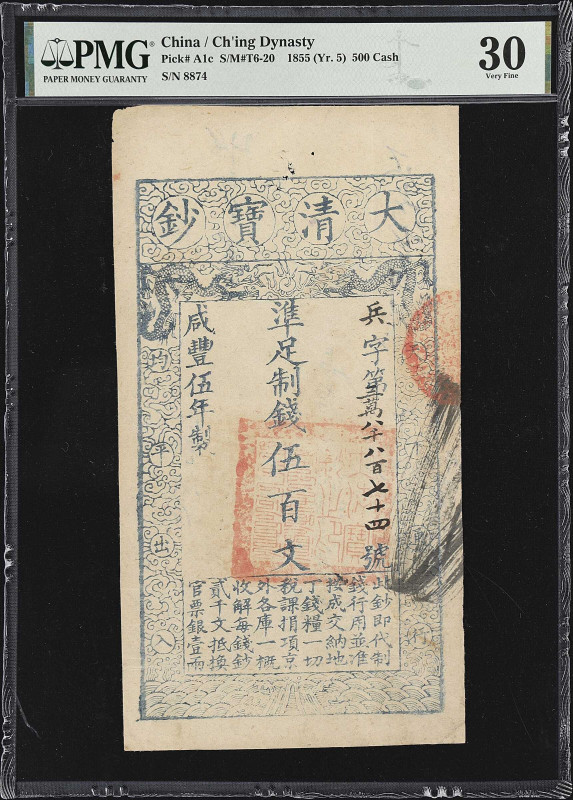 PMG
PAPER MONEY GUARANTY
China / Ch'ing Dynasty
Pick# A1c S/M#T6-20 1855 (Yr. 5) 500 Cash
S/N 8874
30
Very Fine
大清寶鈔
兵字第萬八千八百七十四號
準足制錢伍百文
咸豐伍年製
均平出入
此鈔即代制
錢行用並准
按成交納地
丁錢糧一切
稅課捐項京
外各庫一概
收解每錢鈔
貳千文抵換
官票銀壹兩